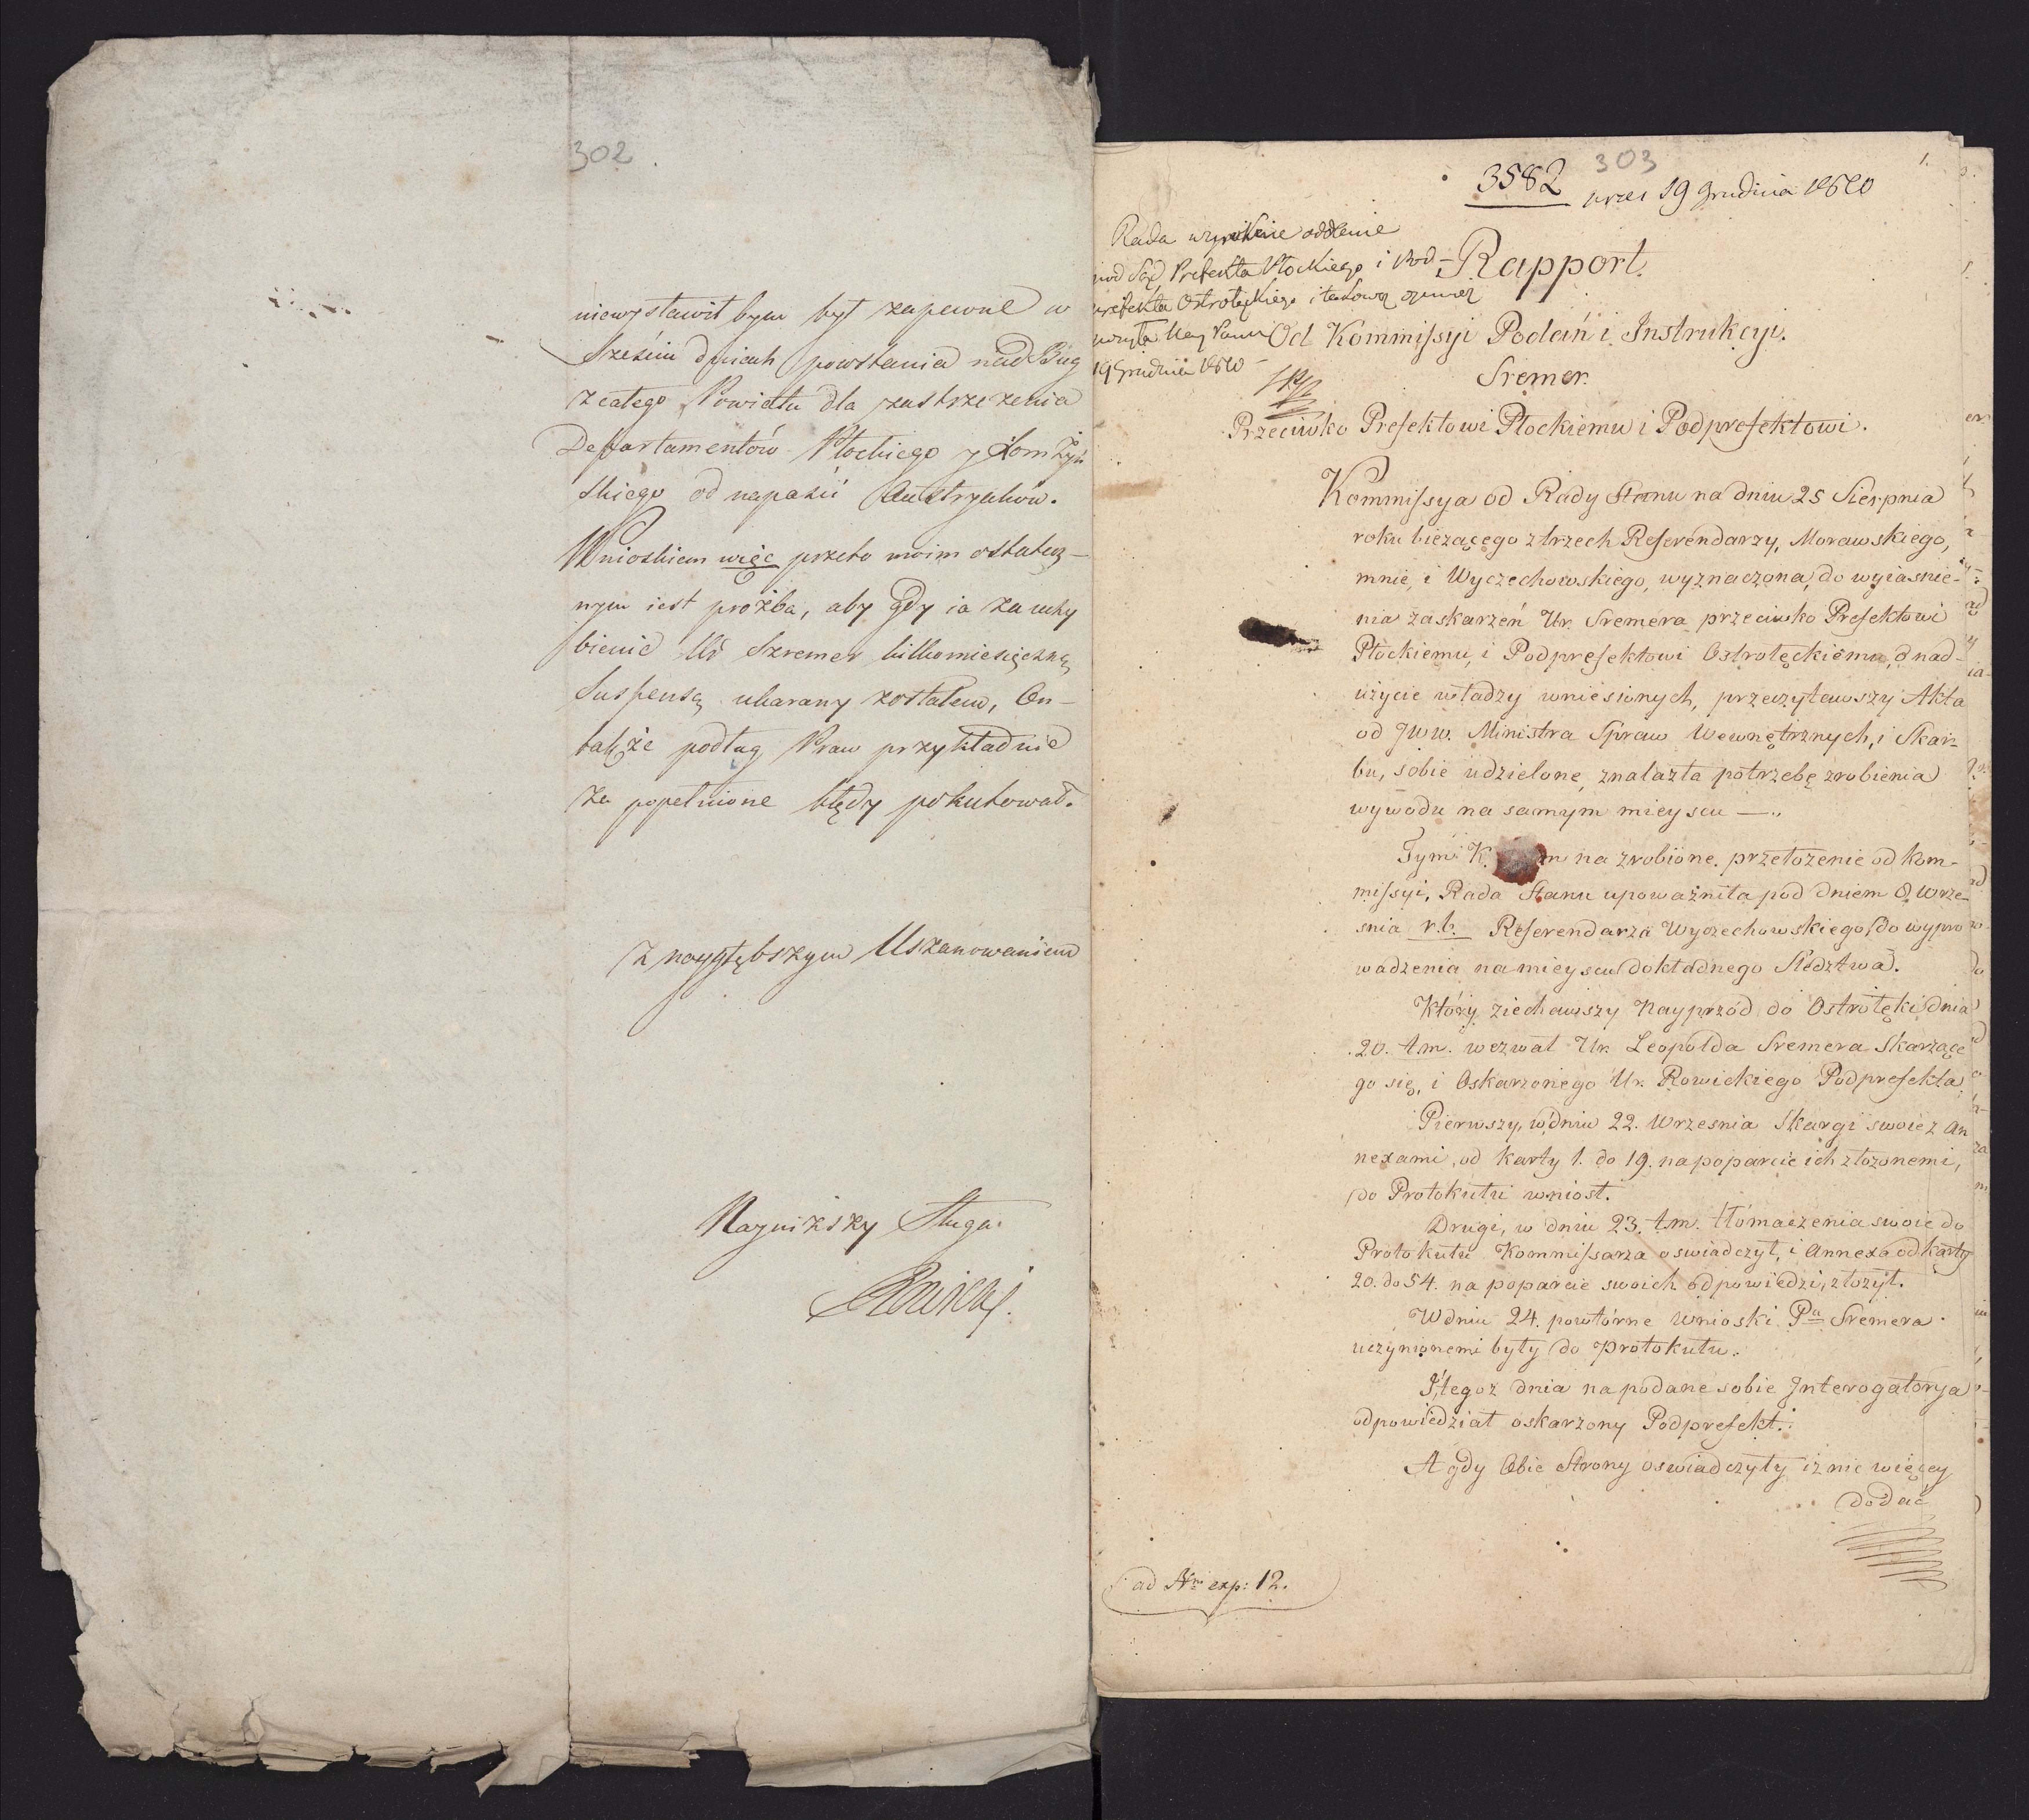 302
niewystawił bym był zapewne w
sześciu dniach powstania nad Bug
z całego Powiatu dla zastrzeżenia
Departamentów Płockiego y Łomżyń
skiego od napaści Austryaków.
Wnioskiem więc przeto moim ostatecz-
nym iest proźba, aby gdy ia za uchy
bienie Ur Szremer kilkomiesięczną
Suspensą ukarany zostałem, On-
także podług Praw przykładnie
za popełnione błędy pokutował.
Z naygłębszym Uszanowaniem
Nayniższy Sługa.
303
1.
3582
19 Grudnia 1810
Rada oddanie
pod Sąd Prefekta Płockiego i Pod-
prefekta Ostrołęckiego i takową
19 Grudnia 1810
Rapport.
Od Kommissyi Podań i Instrukcyi.
Sremer.
Przeciwko Prefektowi Płockiemu i Podprefektowi.
Kommissya od Rady Stanu na dniu 25 Sierpnia
roku bieżącego z trzech Referendarzy, Morawskiego,
mnie, i Wyczechowskiego, wyznaczona, do wyiasnie-
nia zaskarżeń Ur. Sremera przeciwko Prefektowi
Płockiemu, i Podprefektowi Ostrołęckiemu, o nad-
użycie władzy wniesionych, przeczytawszy Akta
od JWW. Ministra Spraw Wewnętrznych, i Skar-
bu, sobie udzielone, znalazła potrzebę zrobienia
wywodu na samym mieyscu —..
Tym na zrobione przełożenie od kom-
missyi, Rada Stanu upoważniła pod dniem 8 Wrze-
snia r.b. Referendarza Wyczechowskiego do wypro
wadzenia na mieyscu dokładnego Śledztwa.
Który ziechawszy Nayprzód do Ostrołęki dnia
20. t.m. wezwał Ur. Leopolda Sremera Skarżące
go się, i Oskarżonego Ur. Rowickiego Podprefekta.
Pierwszy, w dniu 22. Wrzesnia Skargi swoie z An
nexami, od karty 1. do 19. na poparcie ich złożonemi,
do Protokułu wniosł.
Drugi, w dniu 23. t.m. tłómaczenia swoie do
Protokułu Kommissarza oswiadczył, i Annexa od karty
20. do 54. na poparcie swoich odpowiedzi, złożył.
W dniu 24. powtórne Wnioski Pa Sremera
uczynionemi były do Protokułu.
I, tegoż dnia na podane sobie Interogatorya
odpowiedział oskarżony Podprefekt.
A gdy Obie Strony oswiadczyły iż nic więcey
dodać
ad Nrm exp: 12.